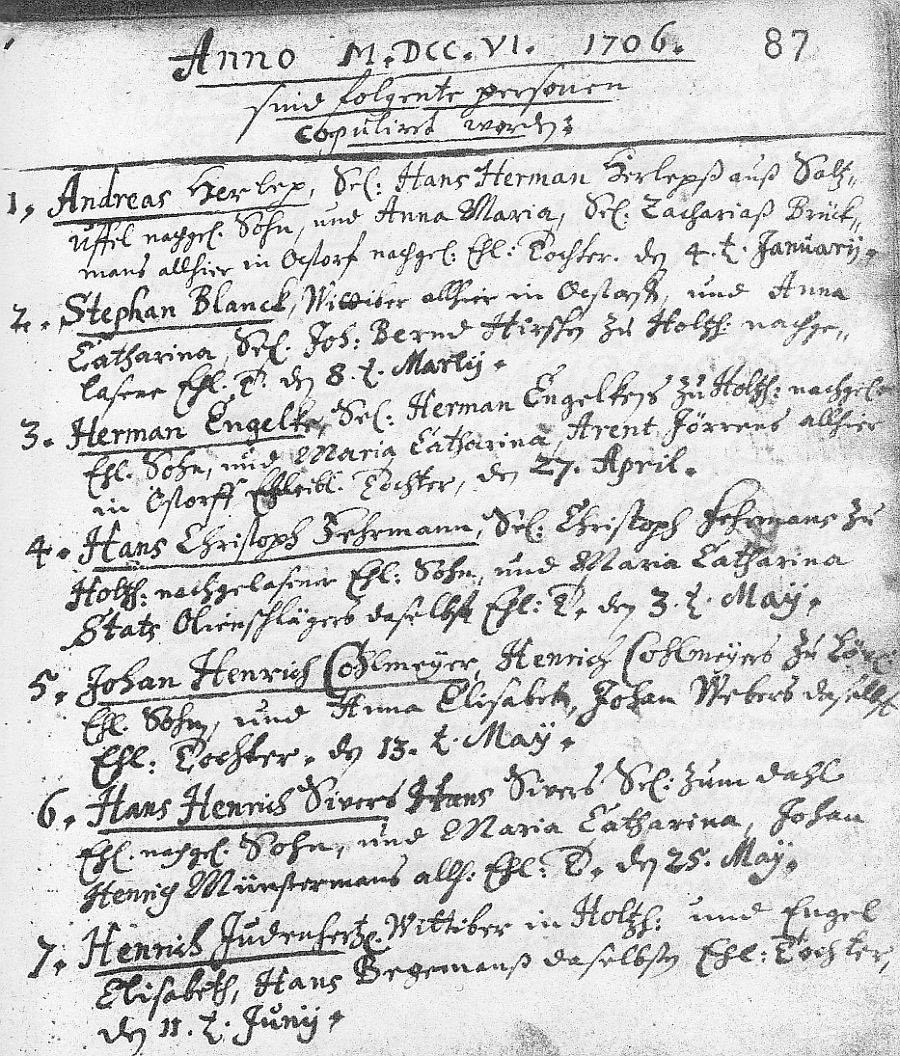 Anno M.DCC.VI. 1706. 87
sind folgente personen
copuliret worden:
1, Andreas Herlep, Sel: Hans Herman Herlepß auß Saltz-
Uffel nachgel. Sohn, und Anna Maria, Sel. Zachariaß Brück-
mans allhier in Ostorf nachgel. Ehl: Tochter. den 4. t. January.
2. Stephan Blanck, Wittiber allhier in Ostorff, und Anna
Catharina, Sel. Joh: Bernd zu Holtzh: nachge-
lasene Ehl. T. den 8. t. Martij.
3. Herman Engelke, Sel: Herman Engelkens zu Holtzh: nachgel.
Ehl. Sohn, und Maria Catharina, Arent Jörrens allhier
in Ostorff Ehleibl. Tochter, den 27. April.
4. Hans Christoph Fehrmann, Sel: Christoph Fehrmans zu
Holtzh: nachgelasener Ehl: Sohn, und Maria Catharina
Stats Olienschlägers daselbst Ehl: T. den 3. t. Maÿ.
5. Johan Henrich Cohlmeÿer, Henrich Cohlmeÿers zu
Ehl. Sohn, und Anna Elisabeth, Johan Webers daselbst
Ehl: Tochter. den 13. t. Maÿ.
6. Hans Henrich Sivers Hans Sivers Sel: zum dahl
Ehl. nachgel. Sohn, und Maria Catharina, Johan
Henrich Münstermans allh: Ehl: T. den 25. Maÿ.
7. Henrich Judenhertze, Wittiber in Holtzh: und Engel
Elisabeth, Hans Begemanß daselbsten Ehl: Tochter,
den 11. t. Junij.